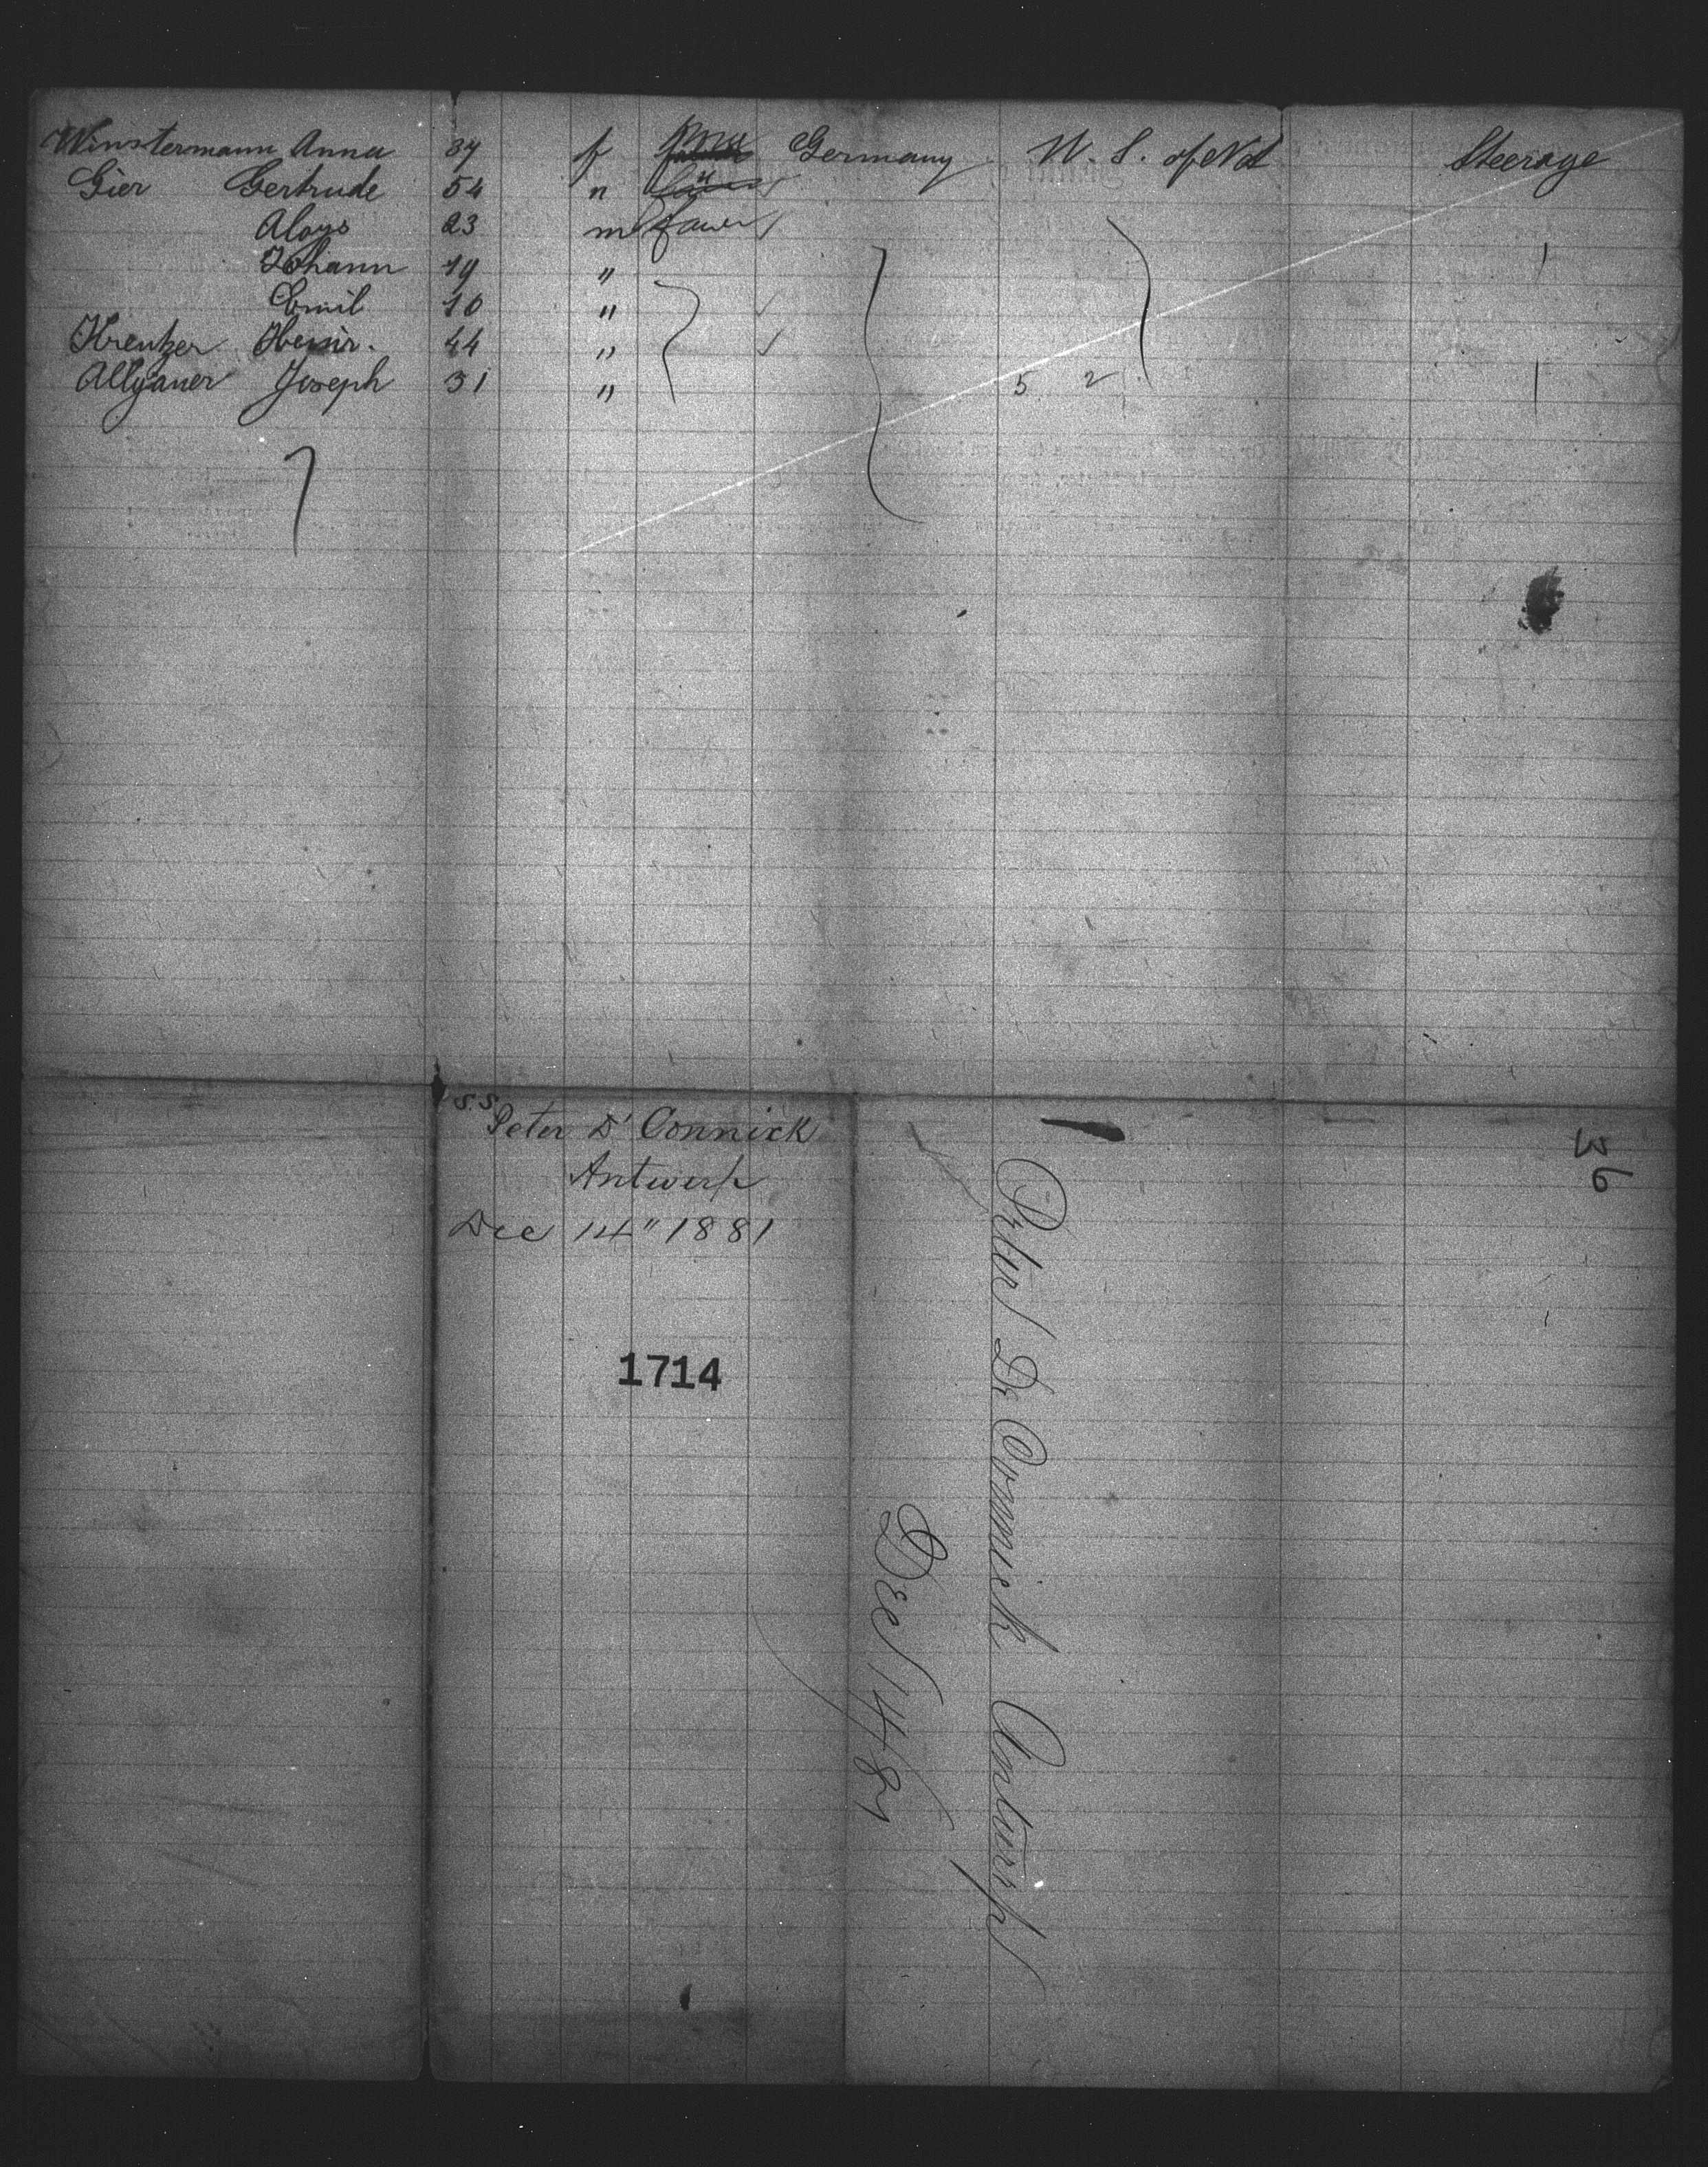 Winstermann Anna 34 f Germany U. S. of Nd Steerage
Gier Gertrude 54 "
Aloys 23 m
Johann 19 "
Emil 10 "
Kreutzer Heinr. 44 "
Allgauer Joseph 31 " 5 2
7
S.S. Peter D' Connick
Antwerp
Dec 14" 1881
1714
Peter De Connick Antwerp
Dec 14 81
36